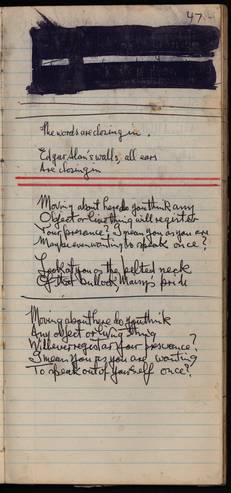 47.
The words are closing in.
Edgar Alan's walls, all ears
Are closing in
Moving about here do you think any
Object or living thing will register
Your presence? I mean you as you are
Maybe even wanting to speak once?
Look at you on the belted neck
Of that bullock, Marry's pride
Moving about here do you think
Any object or living thing
Will ever register your presence?
I mean you as you are wanting
To speak out of yourself once?